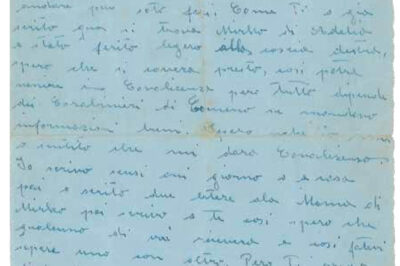 andare poi solo fuori. Come Ti o già
scrito qua si trova Mirko di
e stato ferito legero alla coscia destra,
spero che si covera presto, cosi potrà
venire in Convalescenza pero tutto dipende
dei Carabinieri di Comeno se mandano
informazioni beni. Spero che
e subito che mi dara Convalescenza.
Io scrivo quasi ogni giorno a casa
poi o scrito due letere ala Mama di
Mirko poi scrivo a te cosi spero che
qualcuno di voi ricevera e cosi fatevi
sapere uno con altro. Pero Ti